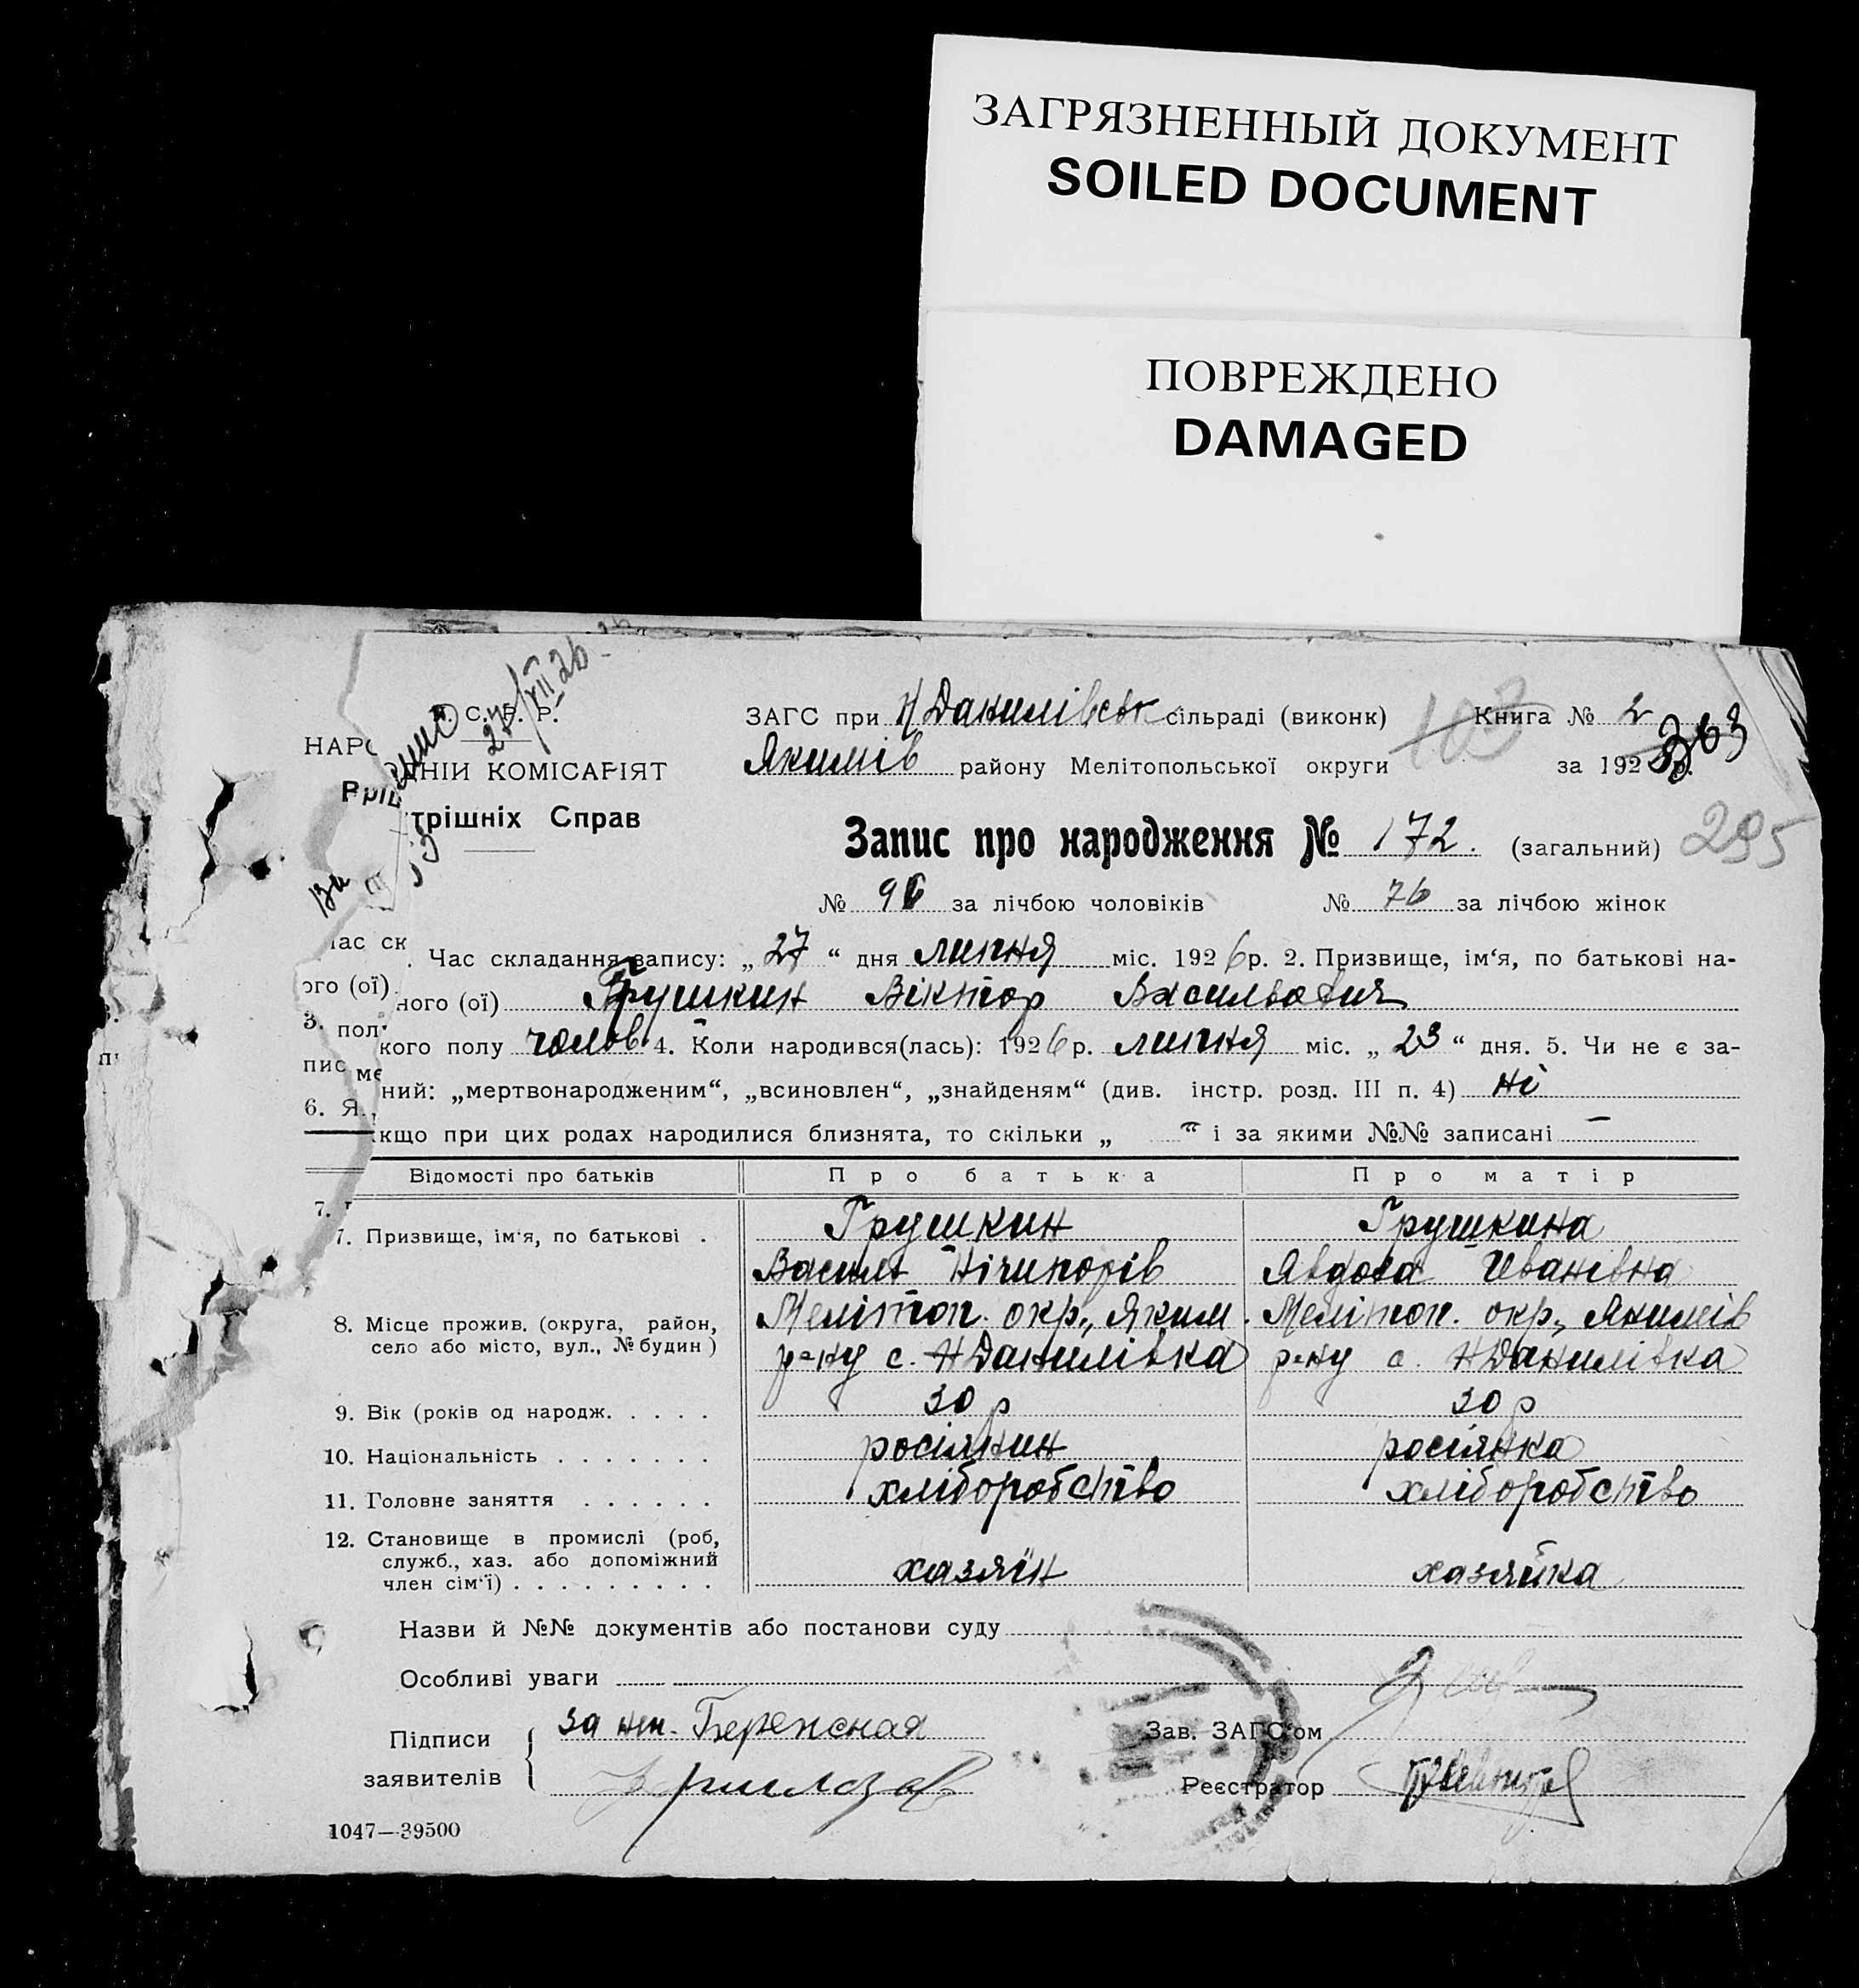 ЗАГРЯЗНЕННЫЙ ДОКУМЕНТ
SOILED DOCUMENT
ПОВРЕЖДЕНО
DAMAGED
27/XII 26
С. Р.
НАР
ДНІЙ КОМІСАРІЯТ
трішніх Справ
ЗАГС при Н Данилівськ сільраді (виконк) 103 Книга № 2
Якимів району Мелітопольської округи за 192 р. 363
Запис про народження № 172. (загальний) 295
№ 96 за лічбою чоловіків № 76 за лічбою жінок
час ск
. Час складання запису: „27“ дня липня міс. 1926р. 2. Призвище, ім‘я, по батькові на-
ого (ої)
ного (ої) Грушкин Віктор Васильович
3. пол
кого полу чолов 4. Коли народився(лась): 1926р. липня міс. „23“ дня. 5. Чи не є за-
пис ме
ний: „мертвонародженим“, „всиновлен“, „знайденям“ (див. інстр. розд. III п. 4) ні
6. Я
кщо при цих родах народилися близнята, то скільки „ — “ і за якими №№ записані —
Відомості про батьків Про батька Про матір
7.
7. Призвище, ім‘я, по батькові . Грушкин Грушкина
Василь Нічипорів Явдоха Іванівна
8. Місце прожив. (округа, район, Мелітоп. окр., Яким. Мелітоп. окр., Якимів
село або місто, вул., № будин) р-ну с. НДанилівка р-ну с. НДанилівка
9. Вік (років од народж. . . . . 30 р 30 р
10. Національність . . . . . . . росіянин росіянка
11. Головне заняття . . . . . . хліборобство хліборобство
12. Становище в промислі (роб,
служб., хаз. або допоміжний хазяїн хазяйка
член сім‘ї) . . . . . . . . .
Назви й №№ документів або постанови суду
Особливі уваги
Підписи за неп. Бережная Зав. ЗАГС‘ом
заявителів Реєстратор
1047—39500